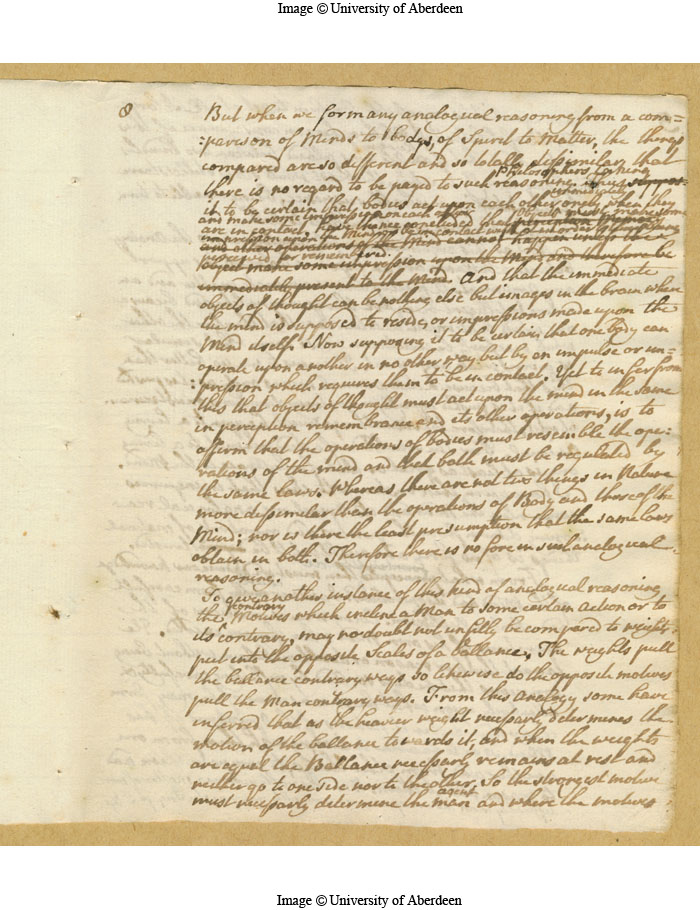 Image © University of Aberdeen
8
But when we form any analogical reasoning from a com=
:parison of Minds to bodys, of Spirit to Matter, the things
compared are so different and so totally dissimilar that
Philosophers taking
there is no regard to be payd to such reasoning.
it to be certain that bodies act upon each other only when they
and make some impression upon each other
are in contact, have thence concluded that
impression upon the Mind or be in contact with it in order to
and other operations of the Mind cannot happen unless the
perceived or remembred.
object make some impression upon the Mind and therefore be
immediatly present to the Mind. And that the immediate
objects of thought can be nothing else but images in the brain where
the mind is supposed to reside, or impressions made upon the
Mind itself. Now supposing it to be certain that one body can
operate upon another in no other way but by an impulse or im-
:pression which requires them to be in contact. Yet to infer from
this that objects of thought must act upon the mind in the same
in perception remembrance and its other operations, is to
affirm that the operations of bodies must resemble the ope:
rations of the mind and that both must be regulated by
the same laws. Whereas there are not two things in Nature
more dissimilar than the operations of Body and those of the
Mind; nor is there the least presumption that the same laws
obtain in both. Therefore there is no force in such analogical
reasoning.
To give another instance of this kind of analogical reasoning
contrary
the Motives which incline a Man to some certain action or to
its contrary, may no doubt not unfitly be compared to weights
put into the opposite Scales of a ballance. The weights pull
the ballance contrary ways so likewise do the opposite motives
pull the Man contrary ways. From this Analogy some have
inferred that as the heavier weight necessarly determines the
motion of the ballance towards it, and when the weights
are equal the Ballance necessarly remains at rest and
neither go to one side nor to the other, So the strongest motive
agent
must necessarly determine the man and where the motives
Image © University of Aberdeen